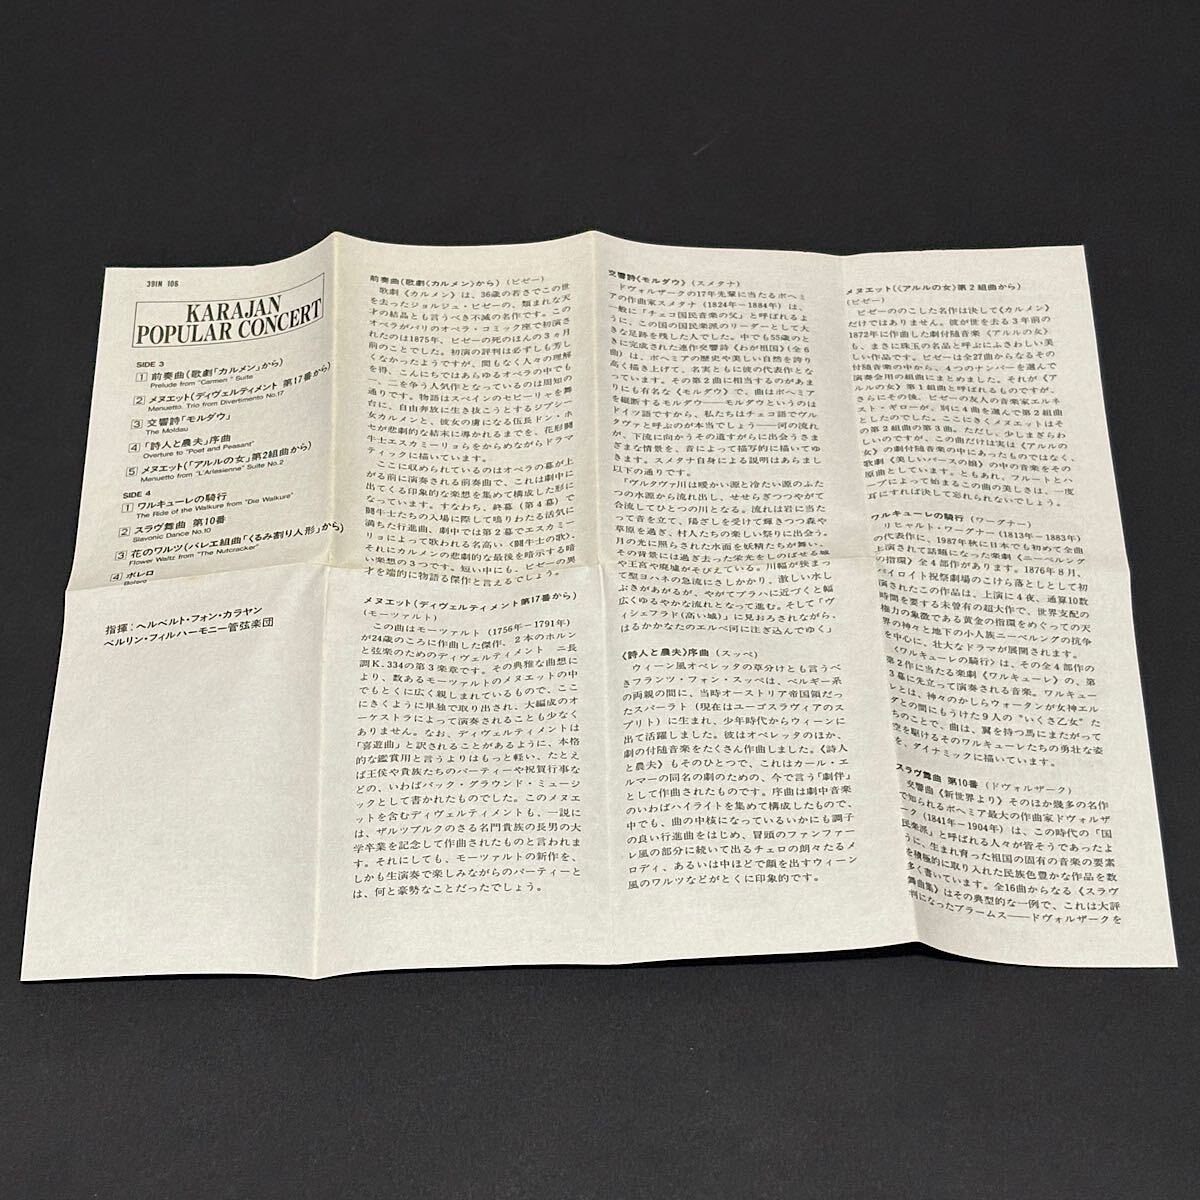 39IN 106
KARAJAN
POPULAR CONCERT
SIDE 3
1 前奏曲(歌劇「カルメン」から)
Prelude from "Carmen" Suite
2 メヌエット(ディヴェルティメント 第17番から)
Menuetto, Trio from Divertimento No.17
3 交響詩「モルダウ」
The Moldau
4 「詩人と農夫」序曲
Overture to "Poet and Peasant"
5 メヌエット(「アルルの女」第2組曲から)
Menuetto from "L'Arlesienne" Suite No.2
SIDE 4
1 ワルキューレの騎行
The Ride of the Walkure from "Die Walkure"
2 スラヴ舞曲 第10番
Slavonic Dance No.10
3 花のワルツ(バレエ組曲「くるみ割り人形」から)
Flower Waltz from "The Nutcracker"
4 ボレロ
Bolero
指揮:ヘルベルト・フォン・カラヤン
ベルリン・フィルハーモニー管弦楽団
前奏曲(歌劇《カルメン》から)(ビゼー)
歌劇《カルメン》は、36歳の若さでこの世
を去ったジョルジュ・ビゼーの、類まれな天
才の結晶とも言うべき不滅の名作です。この
オペラがパリのオペラ・コミック座で初演さ
れたのは1875年、ビゼーの死のほんの3ヵ月
前のことでした。初演の評判は必ずしも芳し
くなかったようですが、間もなく人々の理解
を得、こんにちではあらゆるオペラの中でも
一、二を争う人気作となっているのは周知の
通りです。物語はスペインのセビーリャを舞
台に、自由奔放に生き抜こうとするジプシー
女カルメンと、彼女の虜になる伍長ドン・ホ
セが悲劇的な結末に導かれるまでを、花形闘
牛士エスカミーリョらをからめながらドラマ
ティックに描いています。
ここに収められているのはオペラの幕が上
がる前に演奏される前奏曲で、これは劇中に
出てくる印象的な楽想を集めて構成した形に
なっています。すなわち、終幕(第4幕)で
闘牛士たちの入場に際して鳴りわたる活気に
満ちた行進曲、劇中では第2幕でエスカミー
リョによって歌われる名高い〈闘牛士の歌〉、
それにカルメンの悲劇的な最後を暗示する暗
い楽想の3つです。短い中にも、ビゼーの異
才を端的に物語る傑作と言えるでしょう。
メヌエット(ディヴェルティメント第17番から)
(モーツァルト)
この曲はモーツァルト(1756年-1791年)
が24歳のころに作曲した傑作、2本のホルン
と弦楽のためのディヴェルティメント ニ長
調K.334の第3楽章です。その典雅な曲想に
より、数あるモーツァルトのメヌエットの中
でもとくに広く親しまれているもので、ここ
にきくように単独で取り出され、大編成のオ
ーケストラによって演奏されることも少なく
ありません。なお、ディヴェルティメントは
"喜遊曲"と訳されることがあるように、本格
的な鑑賞用と言うよりはもっと軽い、たとえ
ば王侯や貴族たちのパーティーや祝賀行事な
どの、いわばバック・グラウンド・ミュージ
ックとして書かれたものでした。このメヌエ
ットを含むディヴェルティメントも、一説に
は、ザルツブルクのさる名門貴族の長男の大
学卒業を記念して作曲されたものと言われま
す。それにしても、モーツァルトの新作を、
しかも生演奏で楽しみながらのパーティーと
は、何と豪勢なことだったでしょう。
交響詩《モルダウ》(スメタナ)
ドヴォルザークの17年先輩に当たるボヘミ
アの作曲家スメタナ(1824年-1884年)は、
一般に「チェコ国民音楽の父」と呼ばれるよ
うに、この国の国民楽派のリーダーとして大
きな足跡を残した人でした。中でも55歳のと
きに完成された連作交響詩《わが祖国》(全6
曲)は、ボヘミアの歴史や美しい自然を誇り
高く描き上げて、名実ともに彼の代表作とな
っています。その第2曲に相当するのがあま
りにも有名な《モルダウ》で、曲はボヘミア
を縦断するモルダウ――モルダウというのは
ドイツ語ですから、私たちはチェコ語でヴル
タヴァと呼ぶのが本当でしょう――河の流れ
が、下流に向かうその道すがらに出会うさま
ざまな情景を、音によって描写的に描いてゆ
きます。スメタナ自身による説明はあらまし
以下の通りです。
「ヴルタヴァ川は暖かい源と冷たい源のふた
つの水源から流れ出し、せせらぎつつやがて
合流してひとつの川となる。流れは岩に当た
って音を立て、陽ざしを受けて輝きつつ森や
草原を過ぎ、村人たちの楽しい祭りに出会う。
月の光に照らされた水面を妖精たちが舞い、
その背景には過ぎ去った栄光をしのばせる城
や王宮や廃墟がそびえている。川幅が狭まっ
て聖ヨハネの急流にさしかかり、激しい水し
ぶきがあがるが、やがてプラハに近づくと幅
広くゆるやかな流れとなって進む。そして『ヴ
ィシェフラド(高い城)』に見おろされながら、
はるかかなたのエルベ河に注ぎ込んでゆく」
《詩人と農夫》序曲(スッペ)
ウィーン風オペレッタの草分けとも言うべ
きフランツ・フォン・スッペは、ベルギー系
の両親の間に、当時オーストリア帝国領だっ
たスパーラト(現在はユーゴスラヴィアのス
プリト)に生まれ、少年時代からウィーンに
出て活躍しました。彼はオペレッタのほか、
劇の付随音楽をたくさん作曲しました。《詩人
と農夫》もそのひとつで、これはカール・エ
ルマーの同名の劇のための、今で言う「劇伴」
として作曲されたものです。序曲は劇中音楽
のいわばハイライトを集めて構成したもので、
中でも、曲の中核になっているいかにも調子
の良い行進曲をはじめ、冒頭のファンファー
レ風の部分に続いて出るチェロの朗々たるメ
ロディ、あるいは中ほどで顔を出すウィーン
風のワルツなどがとくに印象的です。
メヌエット(《アルルの女》第2組曲から)
(ビゼー)
ビゼーののこした名作は決して《カルメン》
だけではありません。彼が世を去る3年前の
1872年に作曲した劇付随音楽《アルルの女》
も、まさに珠玉の名品と呼ぶにふさわしい美
しい作品です。ビゼーは全27曲からなるその
付随音楽の中から、4つのナンバーを選んで
演奏会用の組曲にまとめました。それが《ア
ルルの女》第1組曲と呼ばれるものですが、
さらにその後、ビゼーの友人の音楽家エルネ
スト・ギローが、別に4曲を選んで第2組曲
としたのでした。ここにきくメヌエットはそ
の第2組曲の第3曲。ただし、少しまぎらわ
しいのですが、この曲だけは実は《アルルの
女》の劇付随音楽の中にあったものではなく、
歌劇《美しいパースの娘》の中の音楽をその
原曲としています。ともあれ、フルートとハ
ープによって始まるこの曲の美しさは、一度
耳にすれば決して忘れられないでしょう。
ワルキューレの騎行(ワーグナー)
リヒャルト・ワーグナー(1813年-1883年)
の代表作に、1987年秋に日本でも初めて全曲
上演されて話題になった楽劇《ニーベルング
の指環》全4部作があります。1876年8月、
バイロイト祝祭劇場のこけら落としとして初
演されたこの作品は、上演に4夜、通算10数
時間を要する未曽有の超大作で、世界支配の
権力の象徴である黄金の指環をめぐっての天
界の神々と地下の小人族ニーベルングの抗争
を中心に、壮大なドラマが展開されます。
《ワルキューレの騎行》は、その全4部作の
第2作に当たる楽劇《ワルキューレ》の、第
3幕に先立って演奏される音楽。ワルキュー
レとは、神々のかしらウォータンが女神エル
ダとの間にもうけた9人の"いくさ乙女"た
ちのことで、曲は、翼を持つ馬にまたがって
空を駆けるそのワルキューレたちの勇壮な姿
を、ダイナミックに描いています。
スラヴ舞曲 第10番(ドヴォルザーク)
交響曲《新世界より》そのほか幾多の名作
で知られるボヘミア最大の作曲家ドヴォルザ
ーク(1841年-1904年)は、この時代の「国
民楽派」と呼ばれる人々が皆そうであったよ
うに、生まれ育った祖国の固有の音楽の要素
を積極的に取り入れた民族色豊かな作品を数
多く書いています。全16曲からなる《スラヴ
舞曲集》はその典型的な一例で、これは大評
判になったブラームス――ドヴォルザークを